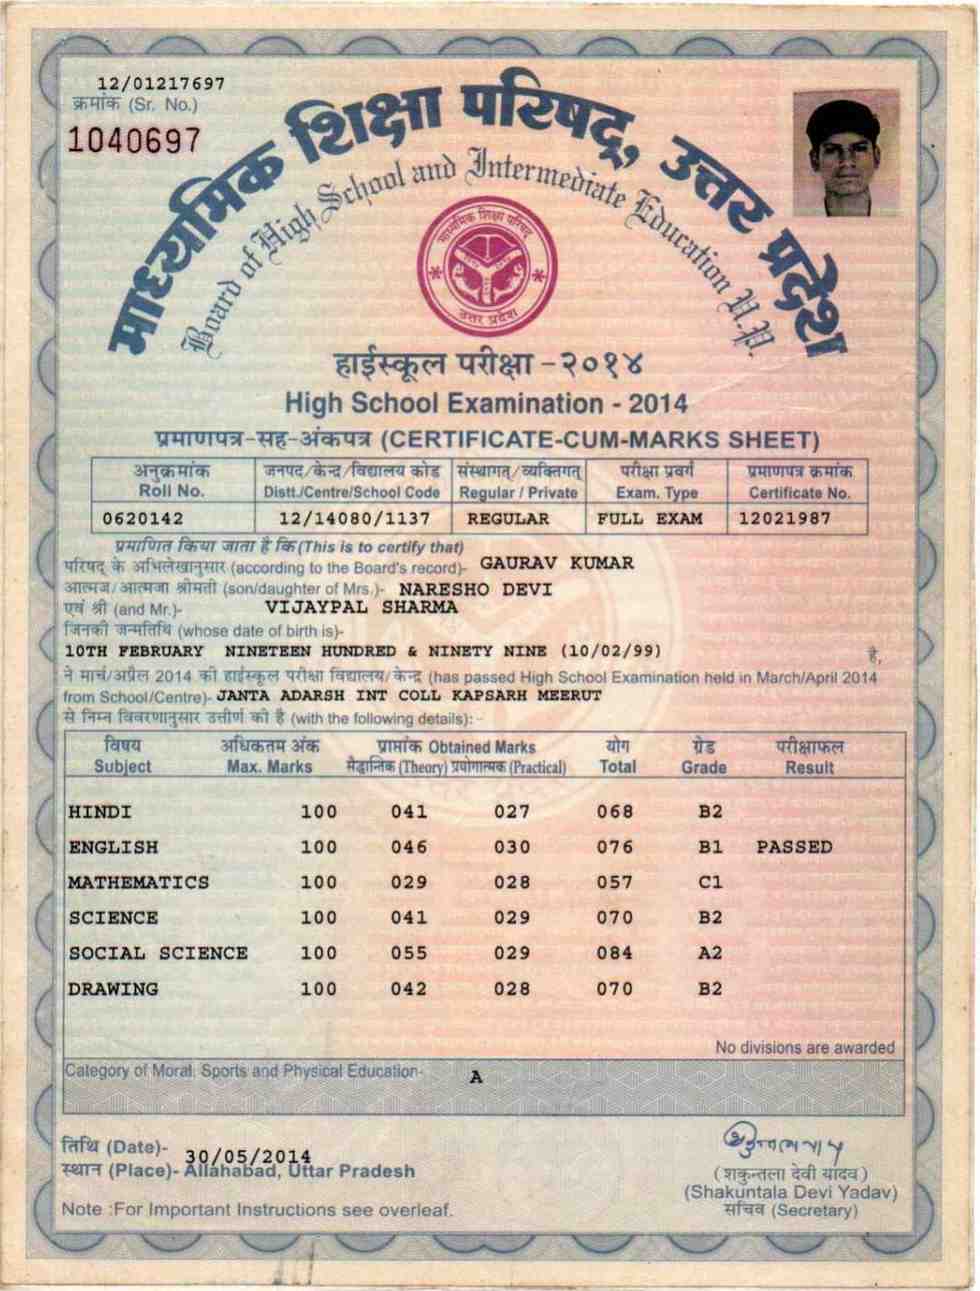 12/01217697
क्रमांक (Sr. No.)
1040697
माध्यमिक शिक्षा परिषद्, उत्तर प्रदेश
Board of High School and Intermediate Education U.P.
माध्यमिक शिक्षा परिषद्
उत्तर प्रदेश
हाईस्कूल परीक्षा - २०१४
High School Examination - 2014
प्रमाणपत्र-सह-अंकपत्र (CERTIFICATE-CUM-MARKS SHEET)
अनुक्रमांक जनपद/केन्द्र/विद्यालय कोड संस्थागत/व्यक्तिगत परीक्षा प्रवर्ग प्रमाणपत्र क्रमांक
Roll No. Distt./Centre/School Code Regular / Private Exam. Type Certificate No.
0620142 12/14080/1137 REGULAR FULL EXAM 12021987
प्रमाणित किया जाता है कि (This is to certify that)
परिषद् के अभिलेखानुसार (according to the Board's record)- GAURAV KUMAR
आत्मज/आत्मजा श्रीमती (son/daughter of Mrs.)- NARESHO DEVI
एवं श्री (and Mr.)- VIJAYPAL SHARMA
जिनकी जन्मतिथि (whose date of birth is)-
10TH FEBRUARY NINETEEN HUNDRED & NINETY NINE (10/02/99) है,
ने मार्च/अप्रैल 2014 की हाईस्कूल परीक्षा विद्यालय/केन्द्र (has passed High School Examination held in March/April 2014
from School/Centre)- JANTA ADARSH INT COLL KAPSARH MEERUT
से निम्न विवरणानुसार उत्तीर्ण की है (with the following details): -
विषय अधिकतम अंक प्राप्तांक Obtained Marks योग ग्रेड परीक्षाफल
Subject Max. Marks सैद्धान्तिक (Theory) प्रयोगात्मक (Practical) Total Grade Result
HINDI 100 041 027 068 B2
ENGLISH 100 046 030 076 B1 PASSED
MATHEMATICS 100 029 028 057 C1
SCIENCE 100 041 029 070 B2
SOCIAL SCIENCE 100 055 029 084 A2
DRAWING 100 042 028 070 B2
No divisions are awarded
Category of Moral, Sports and Physical Education- A
तिथि (Date)- 30/05/2014
स्थान (Place)- Allahabad, Uttar Pradesh
(शकुन्तला देवी यादव)
(Shakuntala Devi Yadav)
सचिव (Secretary)
Note :For Important Instructions see overleaf.